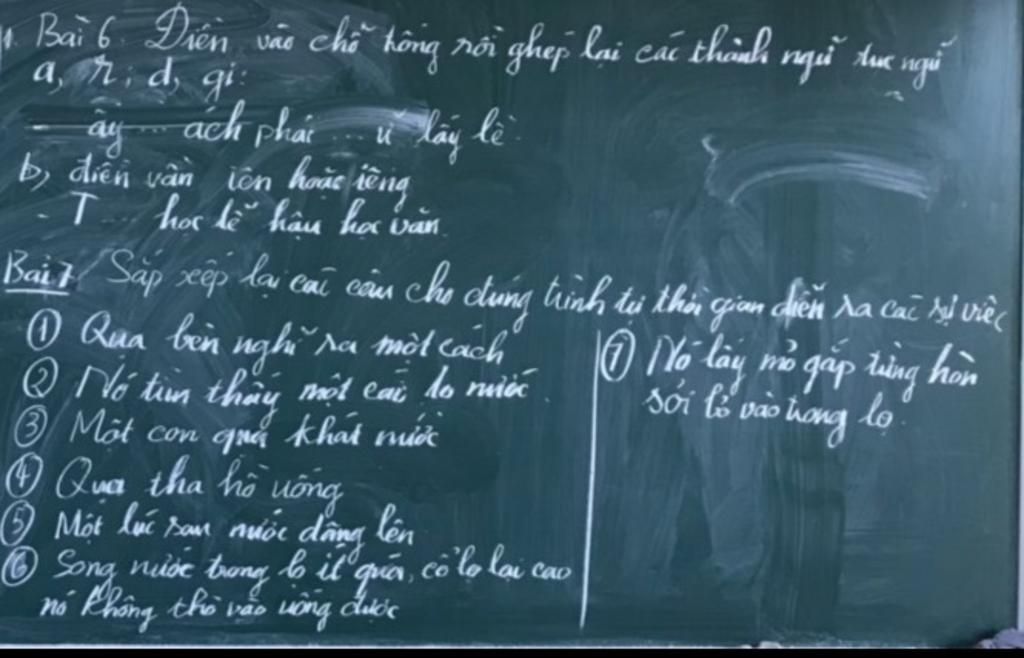 Bài 6. Điền vào chỗ trống rồi ghép lại các thành ngữ tục ngữ
a, r; d, gi:
- ... ấy ... ách phải ... ữ lấy lề.
b, điền vần iên hoặc iêng
- T ... học lễ hậu học văn.
Bài 7 Sắp xếp lại các câu cho đúng trình tự thời gian diễn ra các sự việc
① Quạ bèn nghĩ ra một cách
② Nó tìm thấy một cái lọ nước.
③ Một con quạ khát nước
④ Quạ tha hồ uống
⑤ Một lúc sau nước dâng lên
⑥ Song nước trong lọ ít quá, cổ lọ lại cao
nó không thò vào uống được
⑦ Nó lấy mỏ gắp từng hòn
sỏi bỏ vào trong lọ.